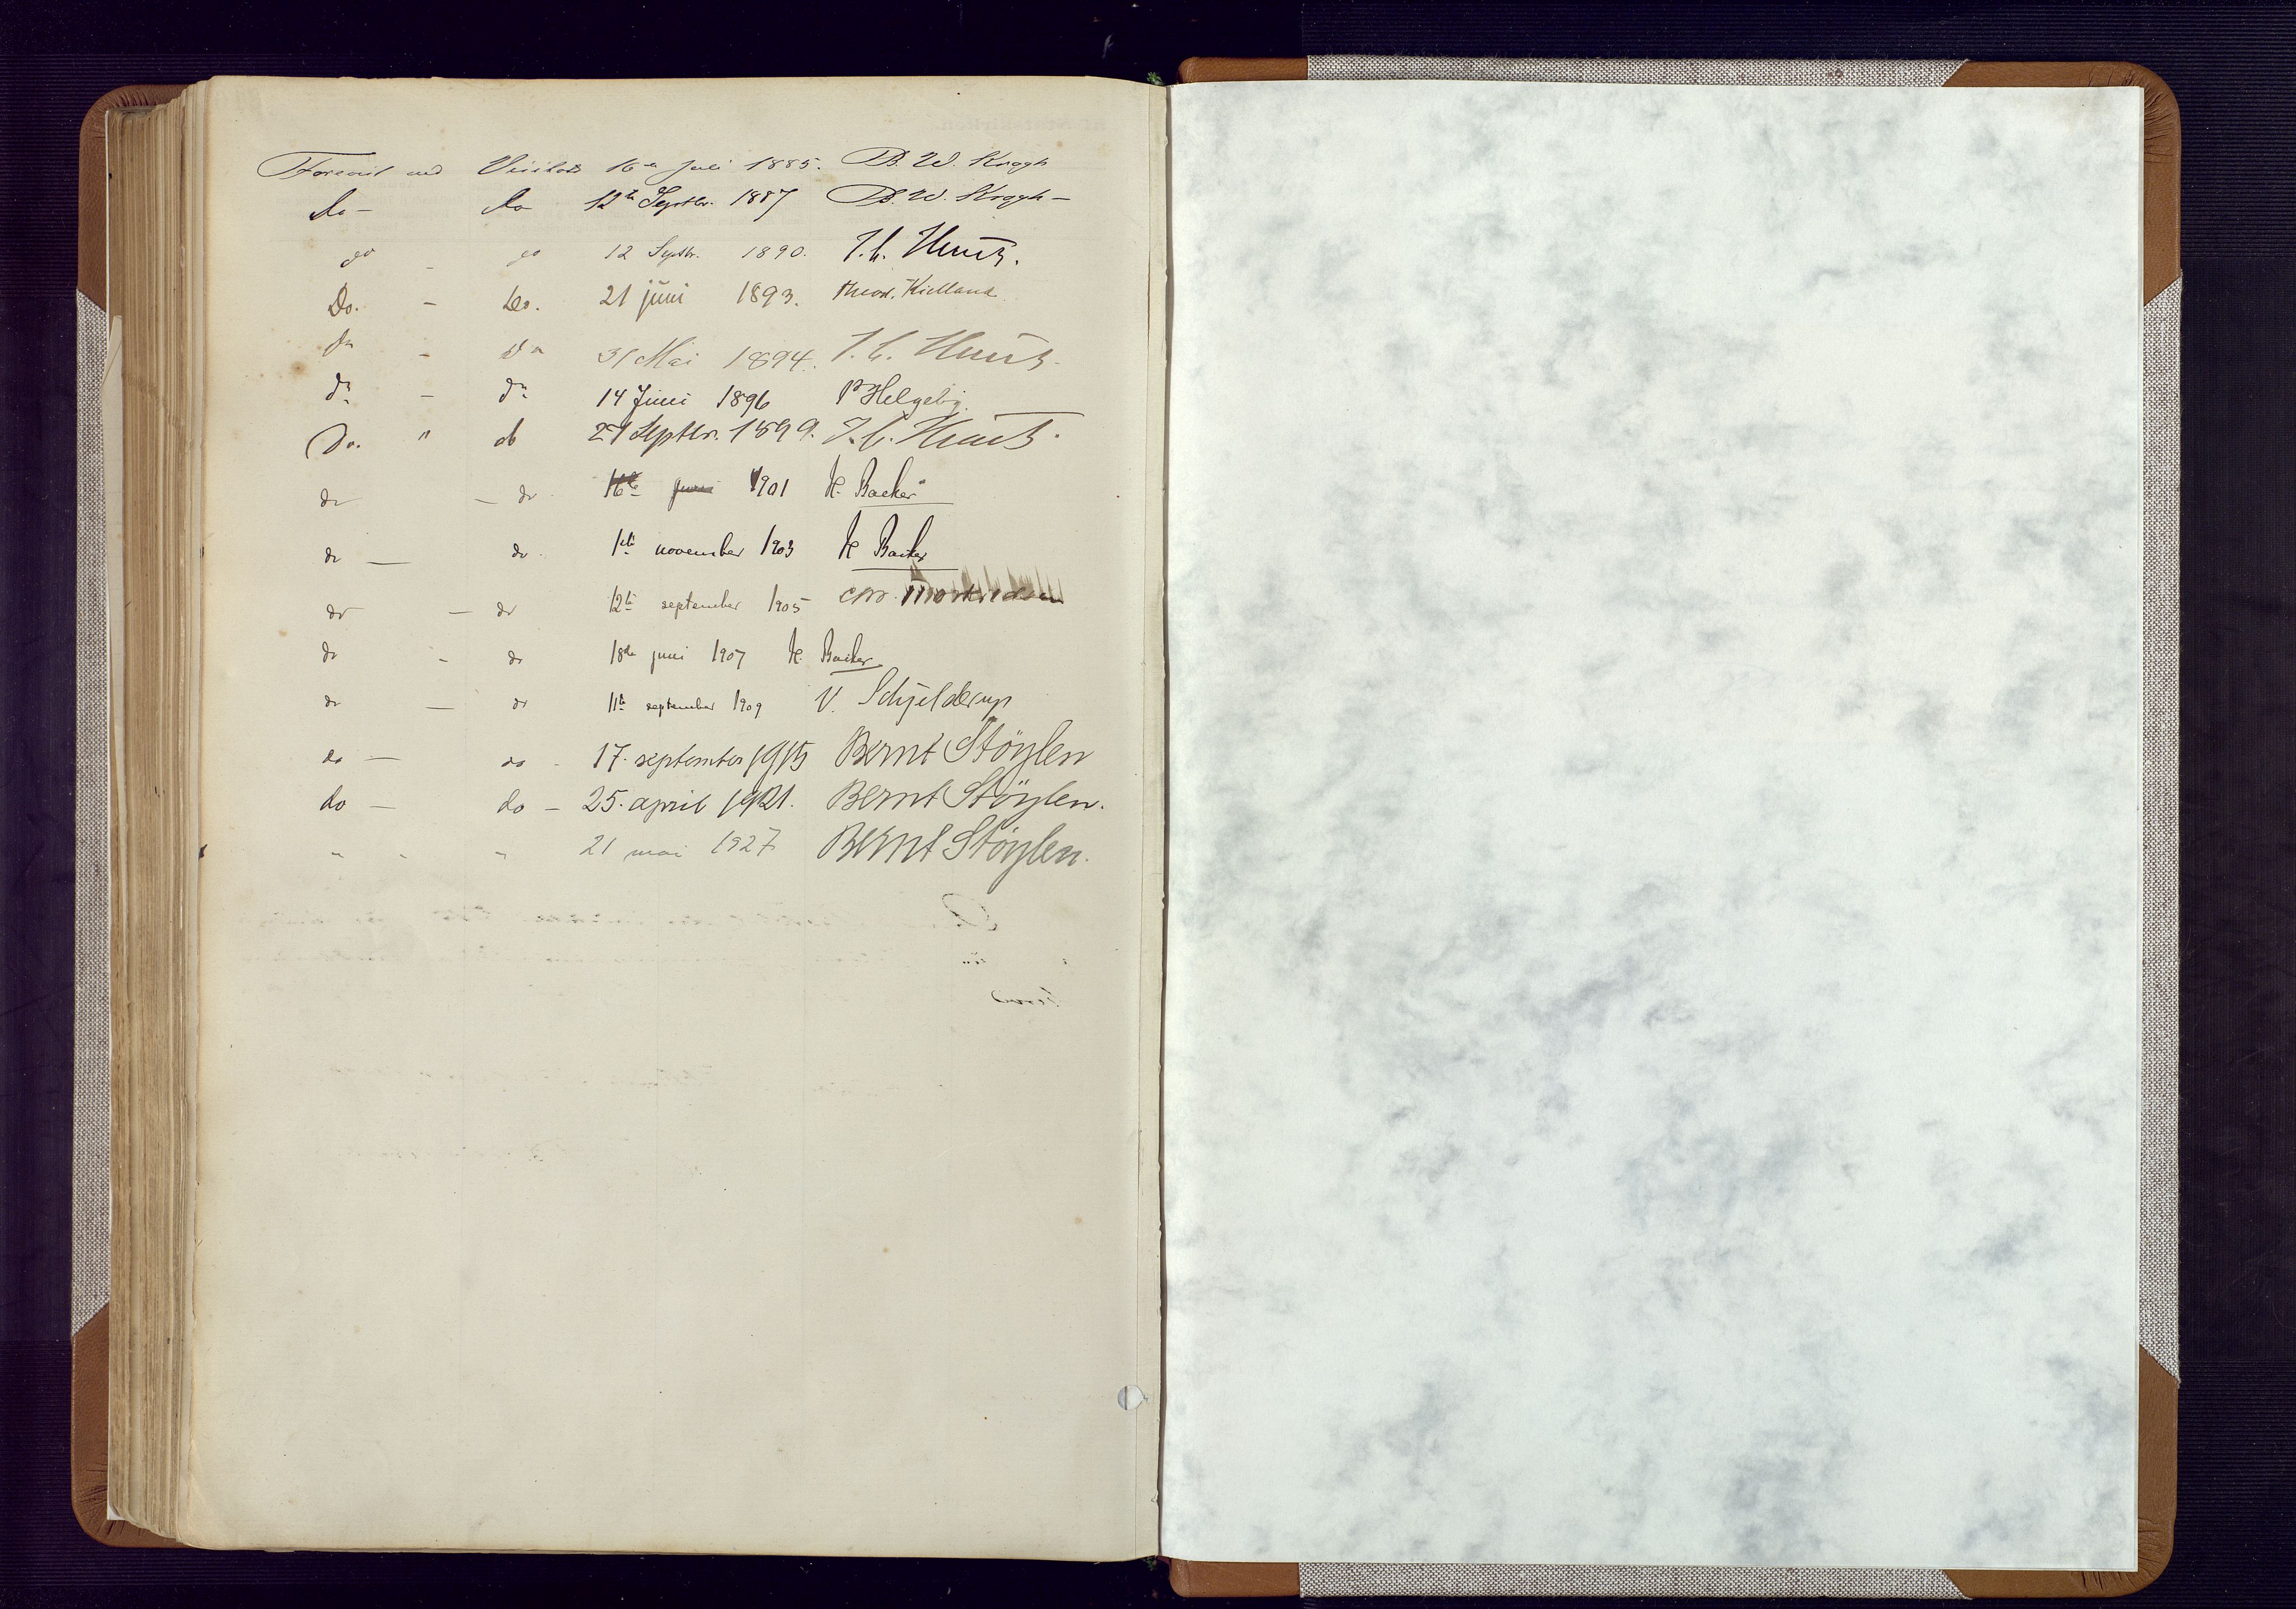 Forevist ved Visitats 16de Juli 1885. B. W. Kragh
Do - Do 12te Septbr. 1887 B. W. Kragh -
do - do 12 Septbr. 1890. J. C. Heuch.
Do. - Do. 21 juni 1893. Theod. Kielland
do - do 31 Mai 1894. J. C. Heuch.
do - do 14 Juni 1896 P Helgeby.
Do. " do 27 Septbr. 1899. J. C. Heuch.
do - do. 1901 K. Backer
do - do. 1ste november 1903 K Backer
do - do 12te september 1905 Chr.
do - do 18de juni 1907 K. Backer
do - do 11te september 1909 V. Schjelderup
do - do - 17. september 1915 Bernt Stöylen
do - do - 25. april 1921. Bernt Stöylen.
" " " 21 mai 1927 Bernt Stöylen.